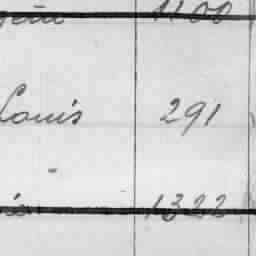 1100
Louis 291
1322